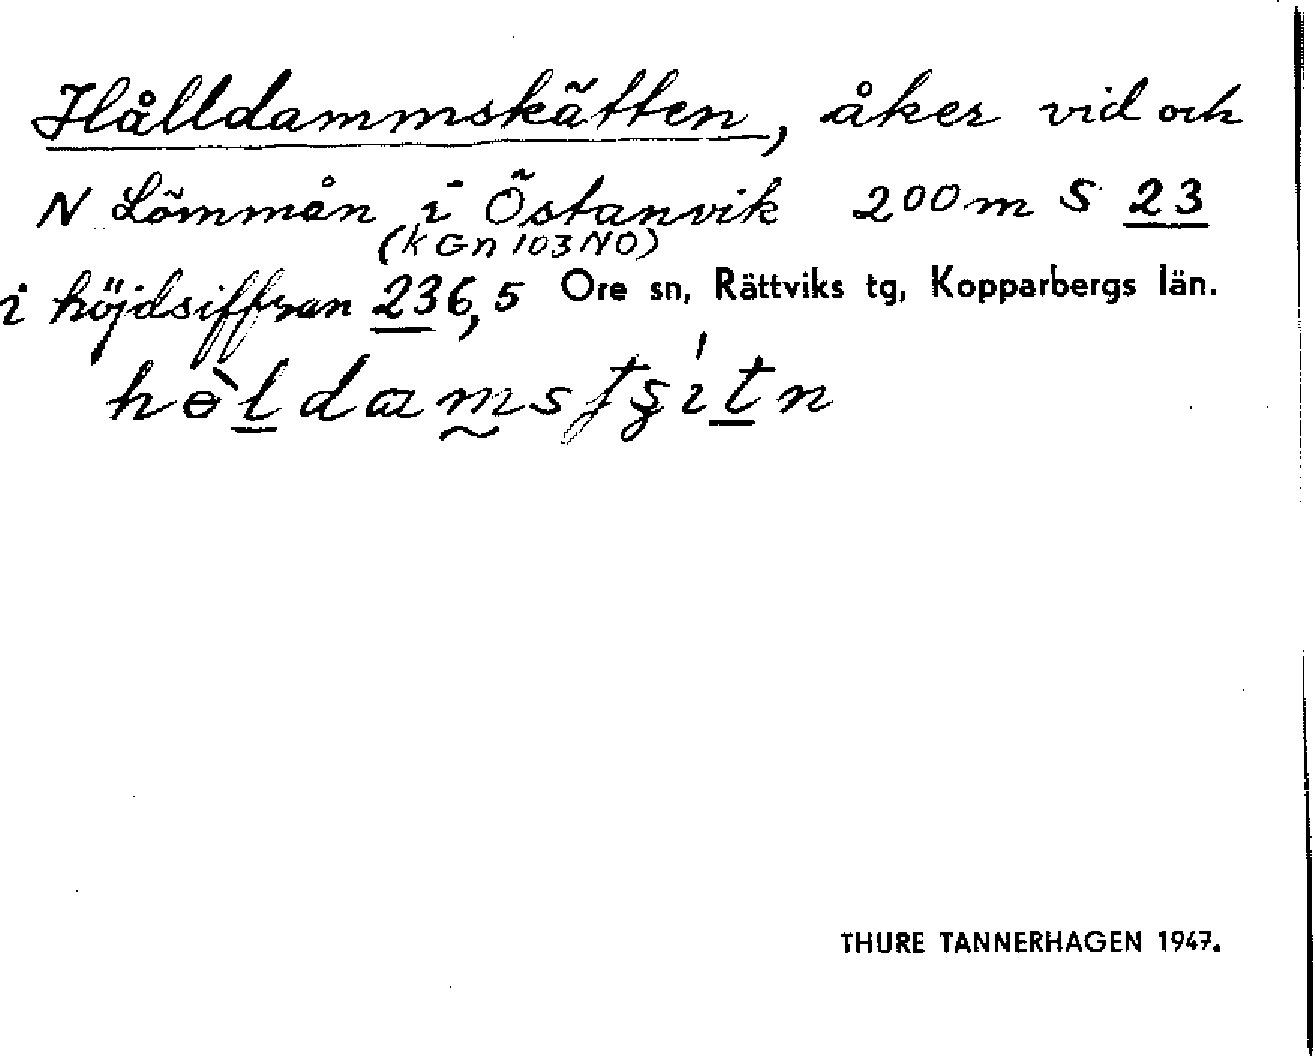 Hålldammskätten, åker vid och
N Lömmån i Östanvik 200 m S 23
(k Gn 103 NO)
i höjdsiffran 236,5 Ore sn, Rättviks tg, Kopparbergs län.
THURE TANNERHAGEN 1947.